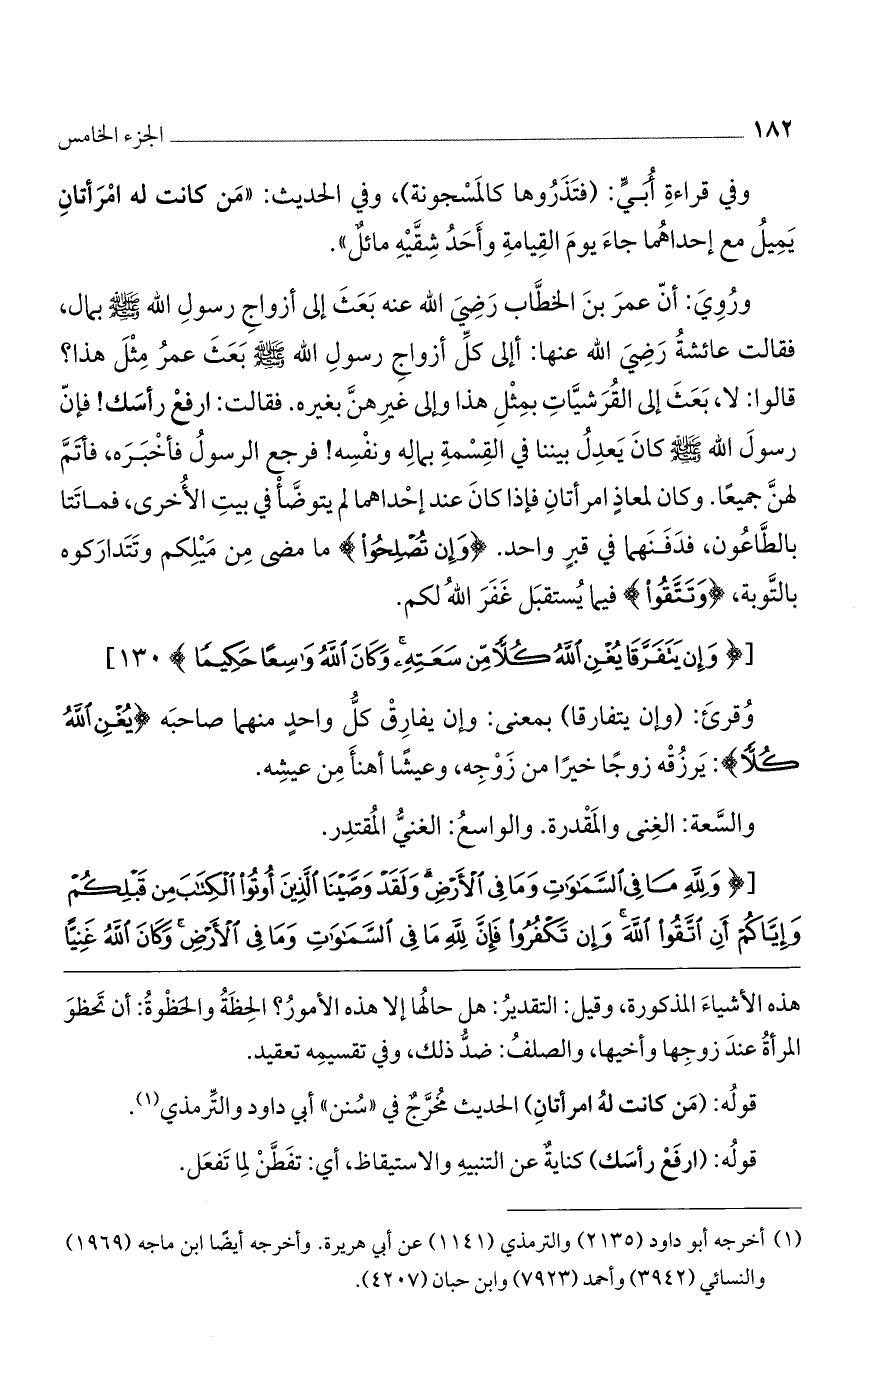 ١٨٢ ــــــــــــــــــــــــــــــــــــــــ الجزء الخامس
وفي قراءةِ أُبـيٍّ: (فتَذَرُوها كالمَسْجونة)، وفي الحديث: «مَن كانت له امْرَأتانِ
يَمِيلُ مع إحداهُما جاءَ يومَ القِيامةِ وأَحَدُ شِقَّيْهِ مائلٌ».
ورُوِيَ: أنّ عمرَ بنَ الخطَّاب رَضِيَ الله عنه بَعَثَ إلى أزواجِ رسولِ الله ﷺ بمال،
فقالت عائشةُ رَضِيَ الله عنها: أإلى كلِّ أزواجِ رسولِ الله ﷺ بَعَثَ عمرُ مِثْلَ هذا؟
قالوا: لا، بَعَثَ إلى القُرَشيَّاتِ بمِثْلِ هذا وإلى غيرِهنَّ بغيره. فقالت: ارفعْ رأسَك! فإنّ
رسولَ الله ﷺ كانَ يَعدِلُ بيننا في القِسْمةِ بمالِه ونفْسِه! فرجع الرسولُ فأخْبَـرَه، فأتَمَّ
لهنَّ جميعًا. وكان لمعاذٍ امرأتانِ فإذا كانَ عند إحْداهما لم يتوضَّأْ في بيتِ الأُخرى، فمـاتَتا
بالطَّاعُون، فدَفَـنَهما في قبرٍ واحد. ﴿وَإِن تُصْلِحُوا۟﴾ ما مضى مِن مَيْلِكم وتَتَدارَكوه
بالتَّوبة، ﴿وَتَتَّقُوا۟﴾ فيما يُستقبَل غَفَرَ اللهُ لكم.
[﴿وَإِن يَتَفَرَّقَا يُغْنِ ٱللَّهُ كُلًّا مِّن سَعَتِهِۦ ۚ وَكَانَ ٱللَّهُ وَٰسِعًا حَكِيمًا﴾ ١٣٠]
وُقرئَ: (وإن يتفارقا) بمعنى: وإن يفارِقْ كلُّ واحدٍ منهما صاحبَه ﴿يُغْنِ ٱللَّهُ
كُلًّا﴾: يَرزُقْه زوجًا خيرًا من زَوْجِه، وعيشًا أهنأَ مِن عيشِه.
والسَّعة: الغِنى والمَقْدرة. والواسعُ: الغنيُّ المُقتدِر.
[﴿وَلِلَّهِ مَا فِى ٱلسَّمَٰوَٰتِ وَمَا فِى ٱلْأَرْضِ ۗ وَلَقَدْ وَصَّيْنَا ٱلَّذِينَ أُوتُوا۟ ٱلْكِتَٰبَ مِن قَبْلِكُمْ
وَإِيَّاكُمْ أَنِ ٱتَّقُوا۟ ٱللَّهَ ۚ وَإِن تَكْفُرُوا۟ فَإِنَّ لِلَّهِ مَا فِى ٱلسَّمَٰوَٰتِ وَمَا فِى ٱلْأَرْضِ ۚ وَكَانَ ٱللَّهُ غَنِيًّا
هذه الأشياءَ المذكورة، وقيل: التقديرُ: هل حالُها إلا هذه الأمورُ؟ الحِظَةُ والحَظْوةُ: أن تَحظوَ
المرأةُ عندَ زوجِها وأخيها، والصلفُ: ضدُّ ذلك، وفي تقسيمِه تعقيد.
قولُه: (مَن كانت لهُ امرأتانِ) الحديث مُخَرَّجٌ في «سُنن» أبي داود والتِّرمذي(١).
قولُه: (ارفَعْ رأسَك) كنايةٌ عن التنبيهِ والاستيقاظ، أي: تفَطَّنْ لِما تَفعَل.
(١) أخرجه أبو داود (٢١٣٥) والترمذي (١١٤١) عن أبي هريرة. وأخرجه أيضًا ابن ماجه (١٩٦٩)
والنسائي (٣٩٤٢) وأحمد (٧٩٢٣) وابن حبان (٤٢٠٧).